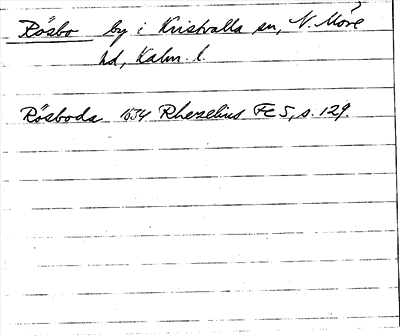 Rösbo by i Kristvalla sn, N. Möre
hd, Kalm. l.
Rösboda 1634 Rhezelius Fc 5, s. 129.